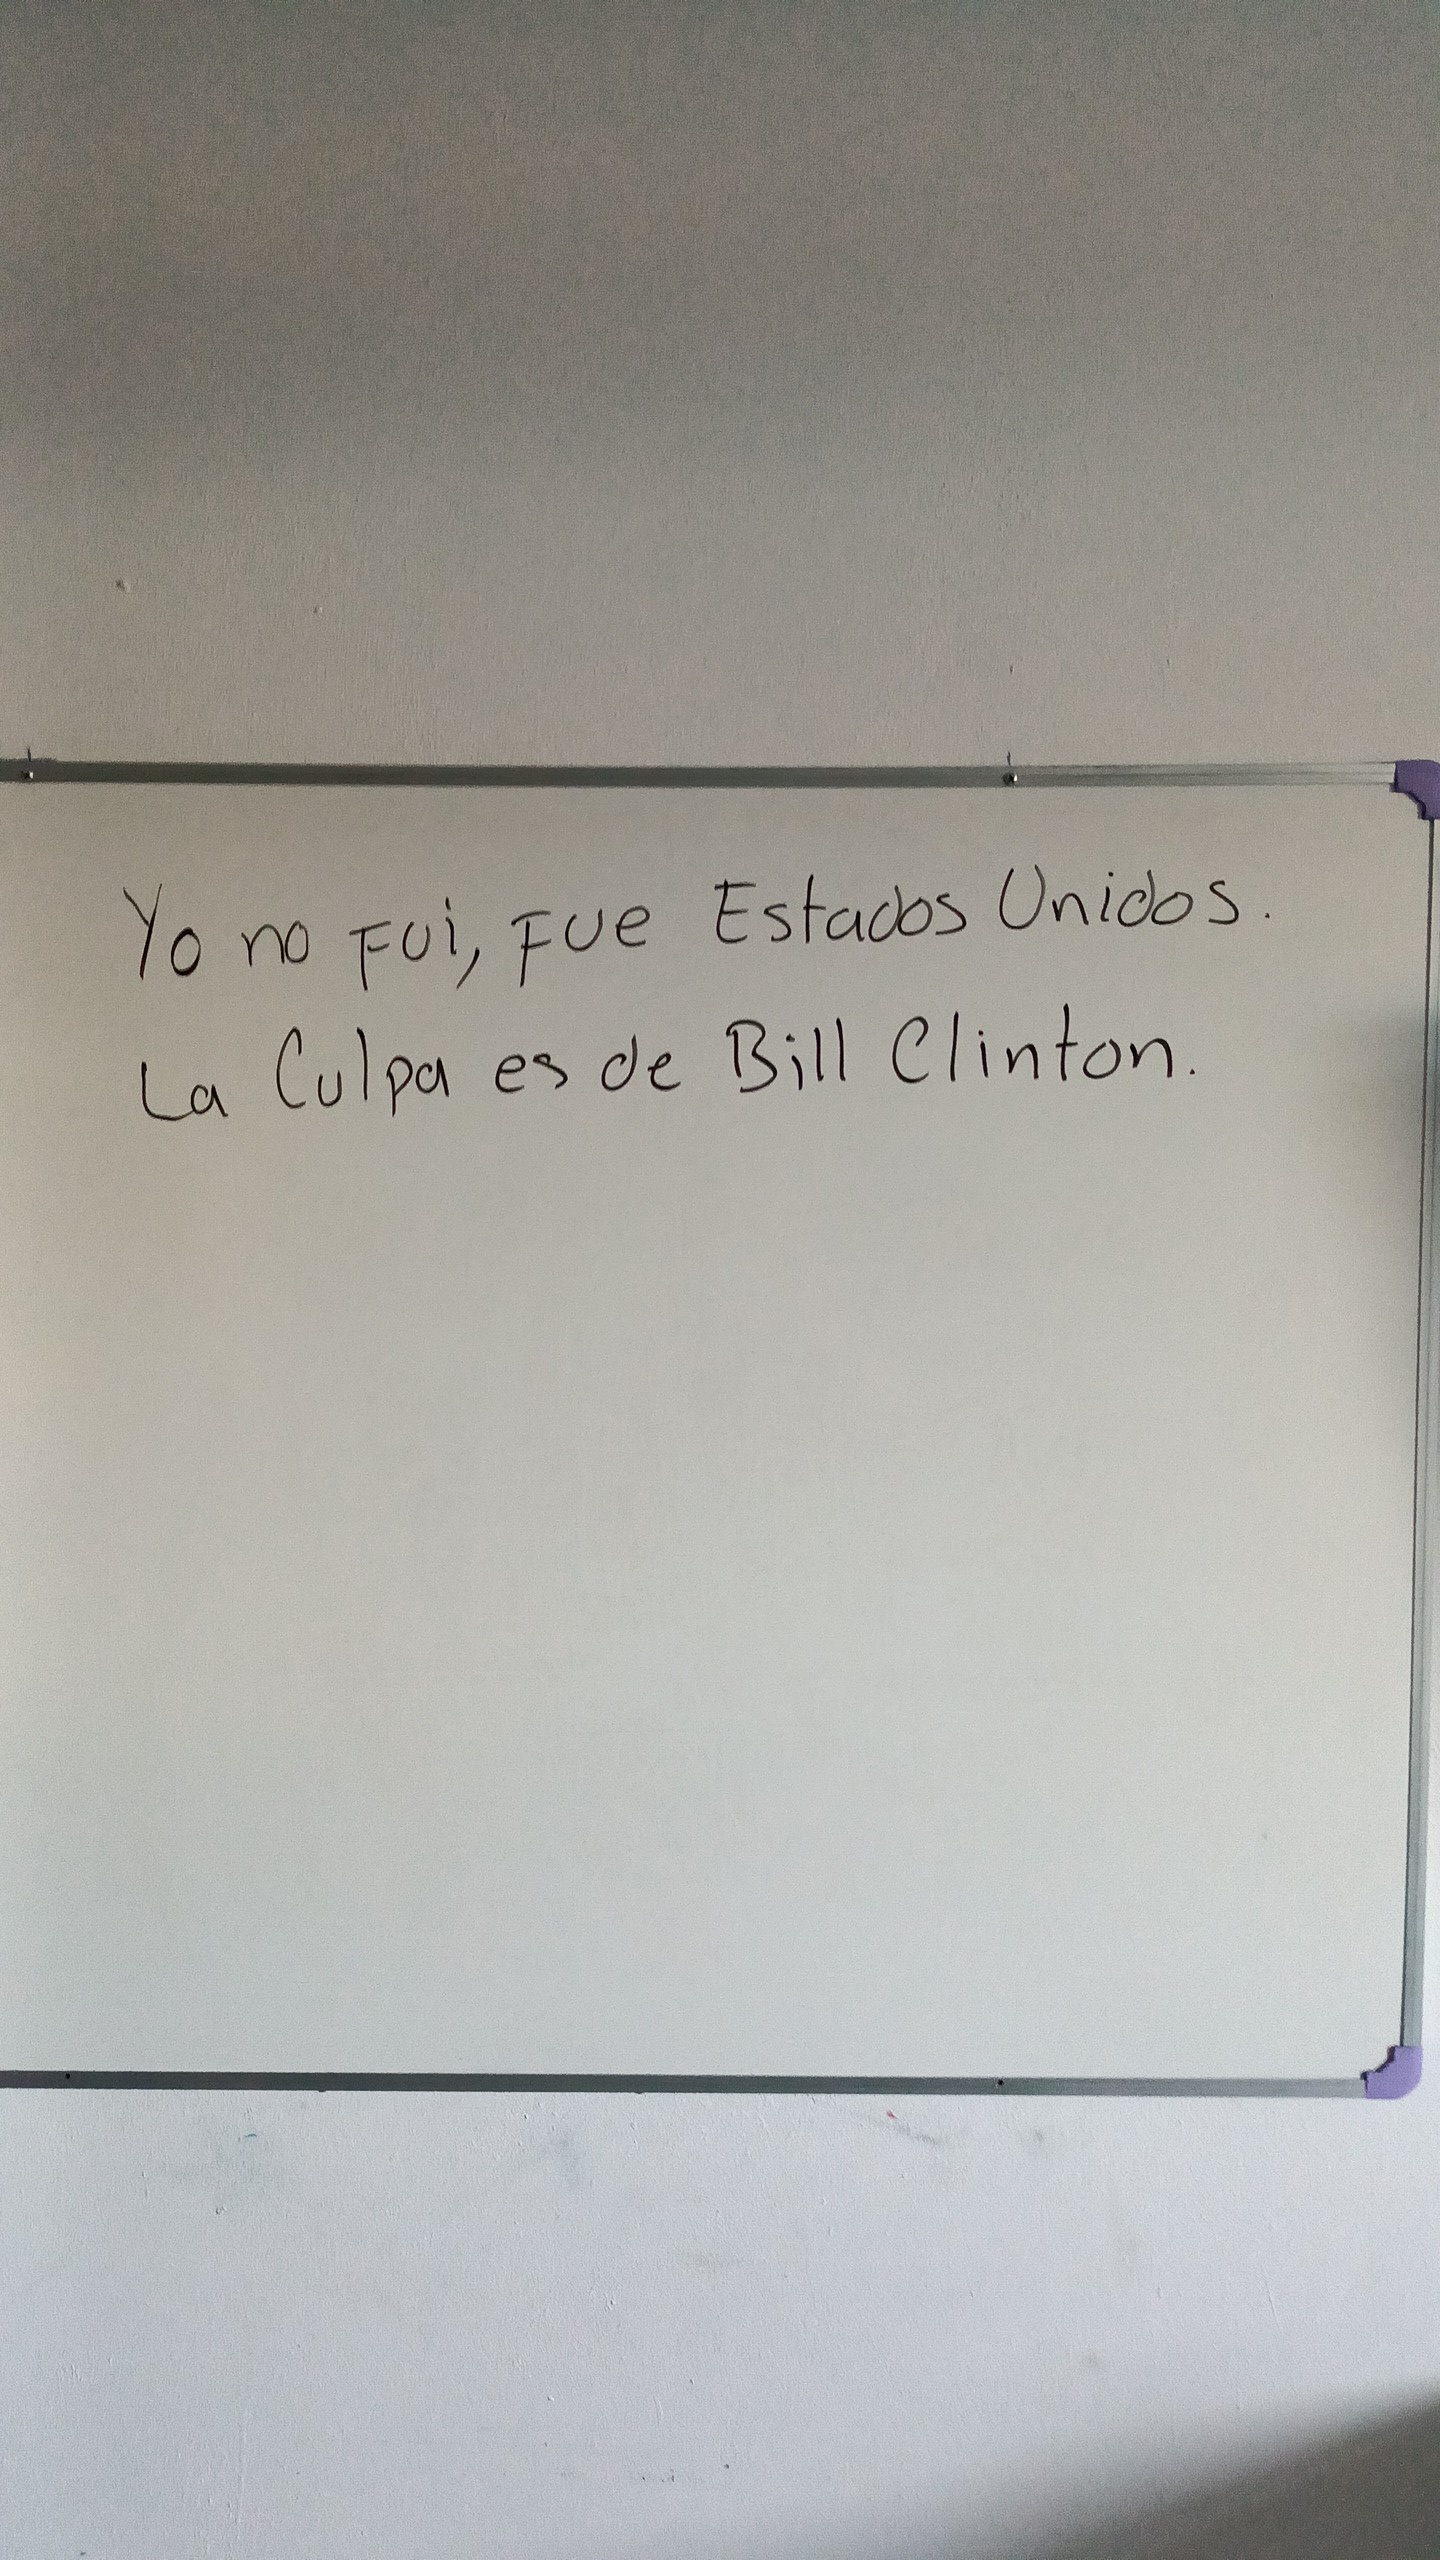 Yo no Fui, Fue Estados Unidos.
La Culpa es de Bill Clinton.